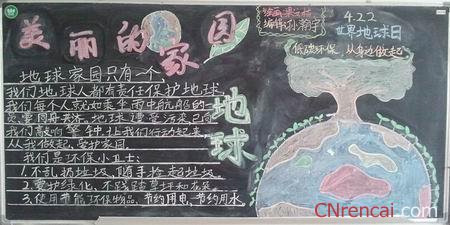 美丽的家园
地球家园只有一个,
我们地球人都有责任保护地球.
我们每个人就如乘
同舟共济.地球遭受污染已向
我们敲响警钟,让我们行动起来
从我做起,爱护家园.
我们是环保小卫士:
1.不乱扔垃圾,随手捡起垃圾.
2.爱护绿化,不践踏草坪和花朵.
3.使用节能环保物品,节约用电、节约用水.
地球
4.22
世界地球日
低碳环保 从身边做起
CNrencai.com